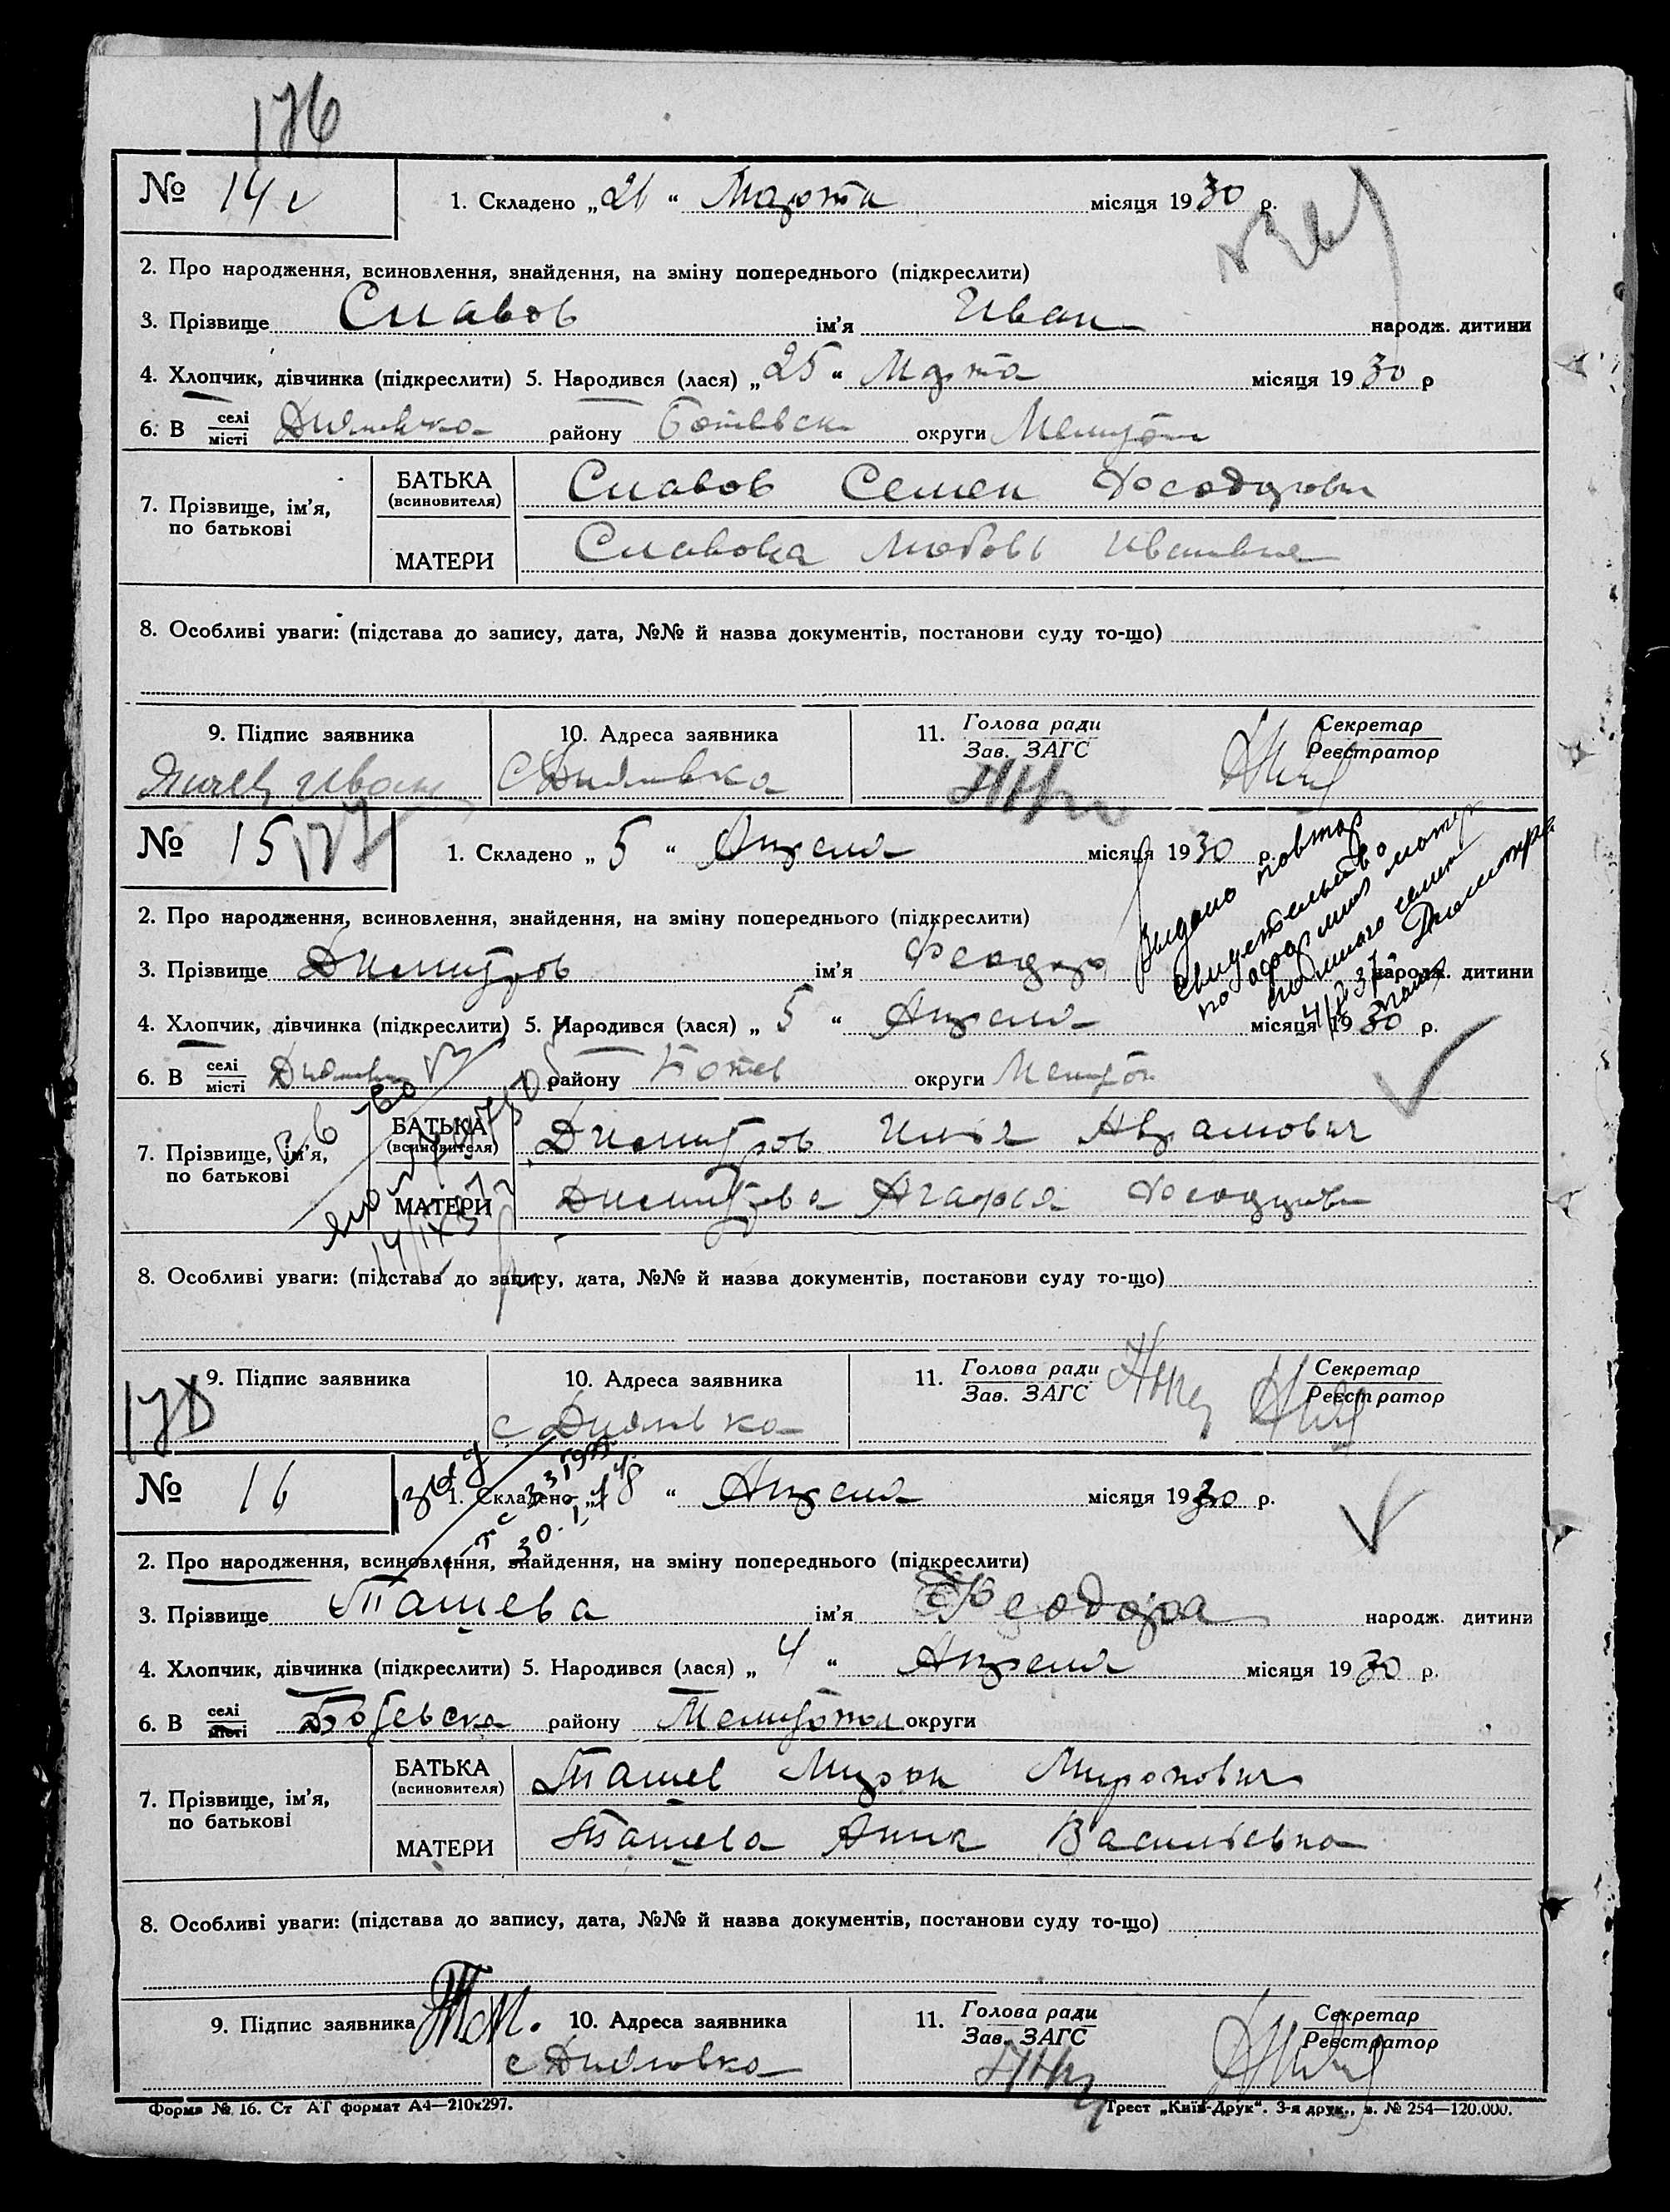 176
№ 14
1. Складено „26“ Марта місяця 1930 р.
2. Про народження, всиновлення, знайдення, на зміну попереднього (підкреслити)
3. Прізвище Славов ім'я Иван народж. дитини
4. Хлопчик, дівчинка (підкреслити) 5. Народився (лася) „25“ Марта місяця 1930 р
6. В селі місті Диановка району Ботевск округи Мелитоп
7. Прізвище, ім'я, по батькові
БАТЬКА (всиновителя) Славов Семен Феодорович
МАТЕРИ Славова Любовь Ивановна
8. Особливі уваги: (підстава до запису, дата, №№ й назва документів, постанови суду то-що)
9. Підпис заявника 10. Адреса заявника 11. Голова ради Зав. ЗАГС Секретар Реєстратор
Иван с Диановка
№ 15 177
1. Складено „5“ Апреля місяця 1930 р.
Выдано повтор свидетельство
2. Про народження, всиновлення, знайдення, на зміну попереднього (підкреслити)
3. Прізвище Димитров ім'я Феодор народж. дитини
4. Хлопчик, дівчинка (підкреслити) 5. Народився (лася) „5“ Апреля місяця 1930 р.
6. В селі місті Диановк району Ботев округи Мелитоп
7. Прізвище, ім'я, по батькові
БАТЬКА (всиновителя) Димитров Илья Аврамович
МАТЕРИ Димитрова Агафья Феодоров
8. Особливі уваги: (підстава до запису, дата, №№ й назва документів, постанови суду то-що)
9. Підпис заявника 10. Адреса заявника 11. Голова ради Зав. ЗАГС Секретар Реєстратор
178
с Диановка
№ 16
1. Складено „8“ Апреля місяця 1930 р.
2. Про народження, всиновлення, знайдення, на зміну попереднього (підкреслити)
3. Прізвище Ташева ім'я Феодора народж. дитини
4. Хлопчик, дівчинка (підкреслити) 5. Народився (лася) „4“ Апреля місяця 1930 р.
6. В селі місті Ботевска району Мелитопол округи
7. Прізвище, ім'я, по батькові
БАТЬКА (всиновителя) Ташев Мирон Миронович
МАТЕРИ Ташева Анна Васильевна
8. Особливі уваги: (підстава до запису, дата, №№ й назва документів, постанови суду то-що)
9. Підпис заявника 10. Адреса заявника 11. Голова ради Зав. ЗАГС Секретар Реєстратор
с Диановка
Форма № 16. Ст АГ формат А4—210х297.
Трест „Київ-Друк“. 3-я друк., з. № 254—120.000.